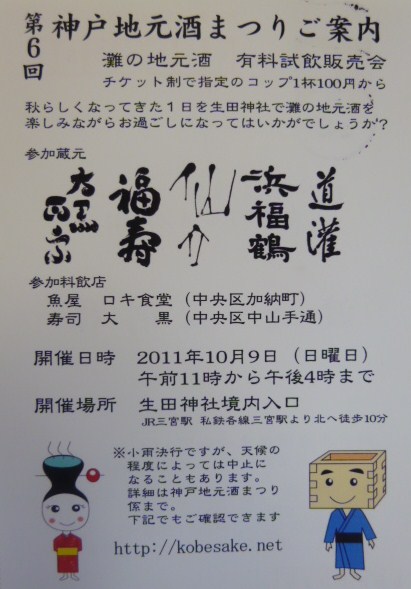 第6回 神戸地元酒まつりご案内
灘の地元酒 有料試飲販売会
チケット制で指定のコップ1杯100円から
秋らしくなってきた1日を生田神社で灘の地元酒を
楽しみながらお過ごしになってはいかがでしょうか?
参加蔵元
道灌
浜福鶴
仙介
福寿
大黒正宗
参加料飲店
魚屋 ロキ食堂（中央区加納町）
寿司 大 黒（中央区中山手通）
開催日時 2011年10月9日（日曜日）
午前11時から午後4時まで
開催場所 生田神社境内入口
JR三宮駅 私鉄各線三宮駅より北へ徒歩10分
※小雨決行ですが、天候の
程度によっては中止に
なることもあります。
詳細は神戸地元酒まつり
係まで。
下記でもご確認できます
http://kobesake.net